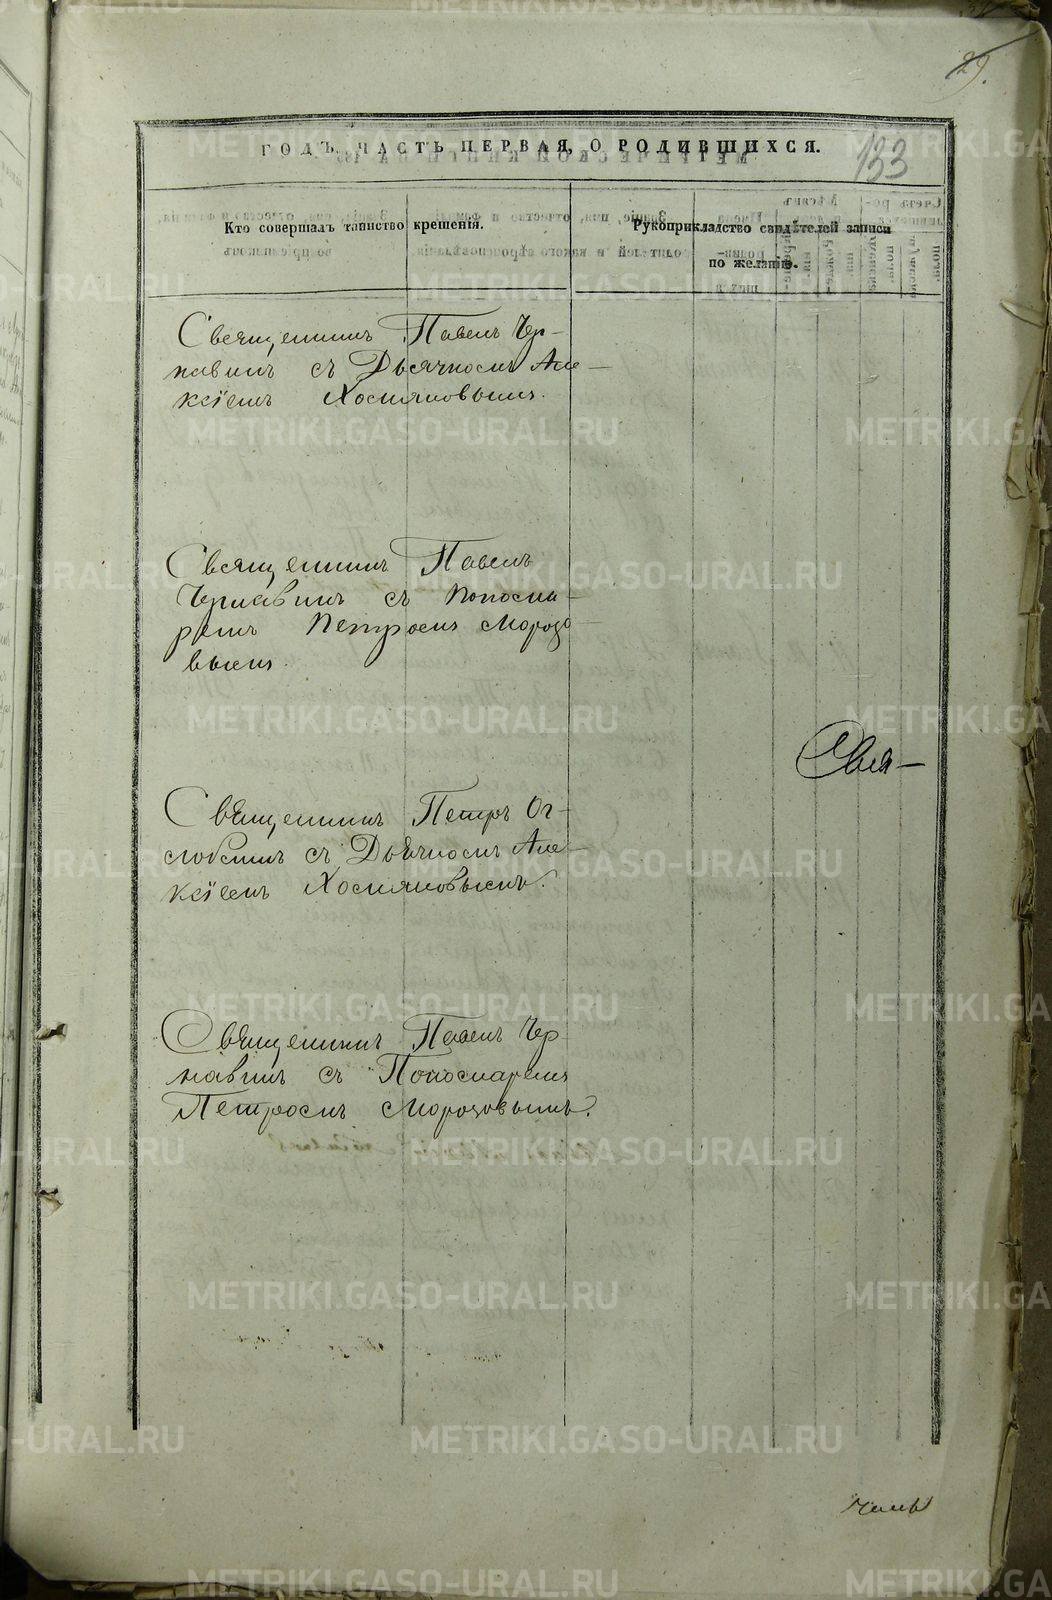 29.
133
ГОДЪ, ЧАСТЬ ПЕРВАЯ, О РОДИВШИХСЯ.
Кто совершалъ таинство крещенія.
Рукоприкладство свидѣтелей записи
по желанію.
Священникъ Павелъ Чер-
навинъ съ Дьячкомъ Але-
ксѣемъ Хосияновымъ.
Священникъ Павелъ
Чернавинъ съ Понома-
ремъ Петромъ Морозо-
вымъ.
Свя-
Священникъ Петръ Ог-
лоблинъ съ Дьячкомъ Але-
ксѣемъ Хосияновымъ.
Священникъ Павелъ Чер-
навинъ съ Пономаремъ
Петромъ Морозовымъ.
METRIKI.GASO-URAL.RU